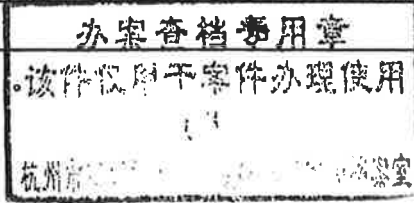 办案查档专用章
。该件仅用于案件办理使用
杭州市
室